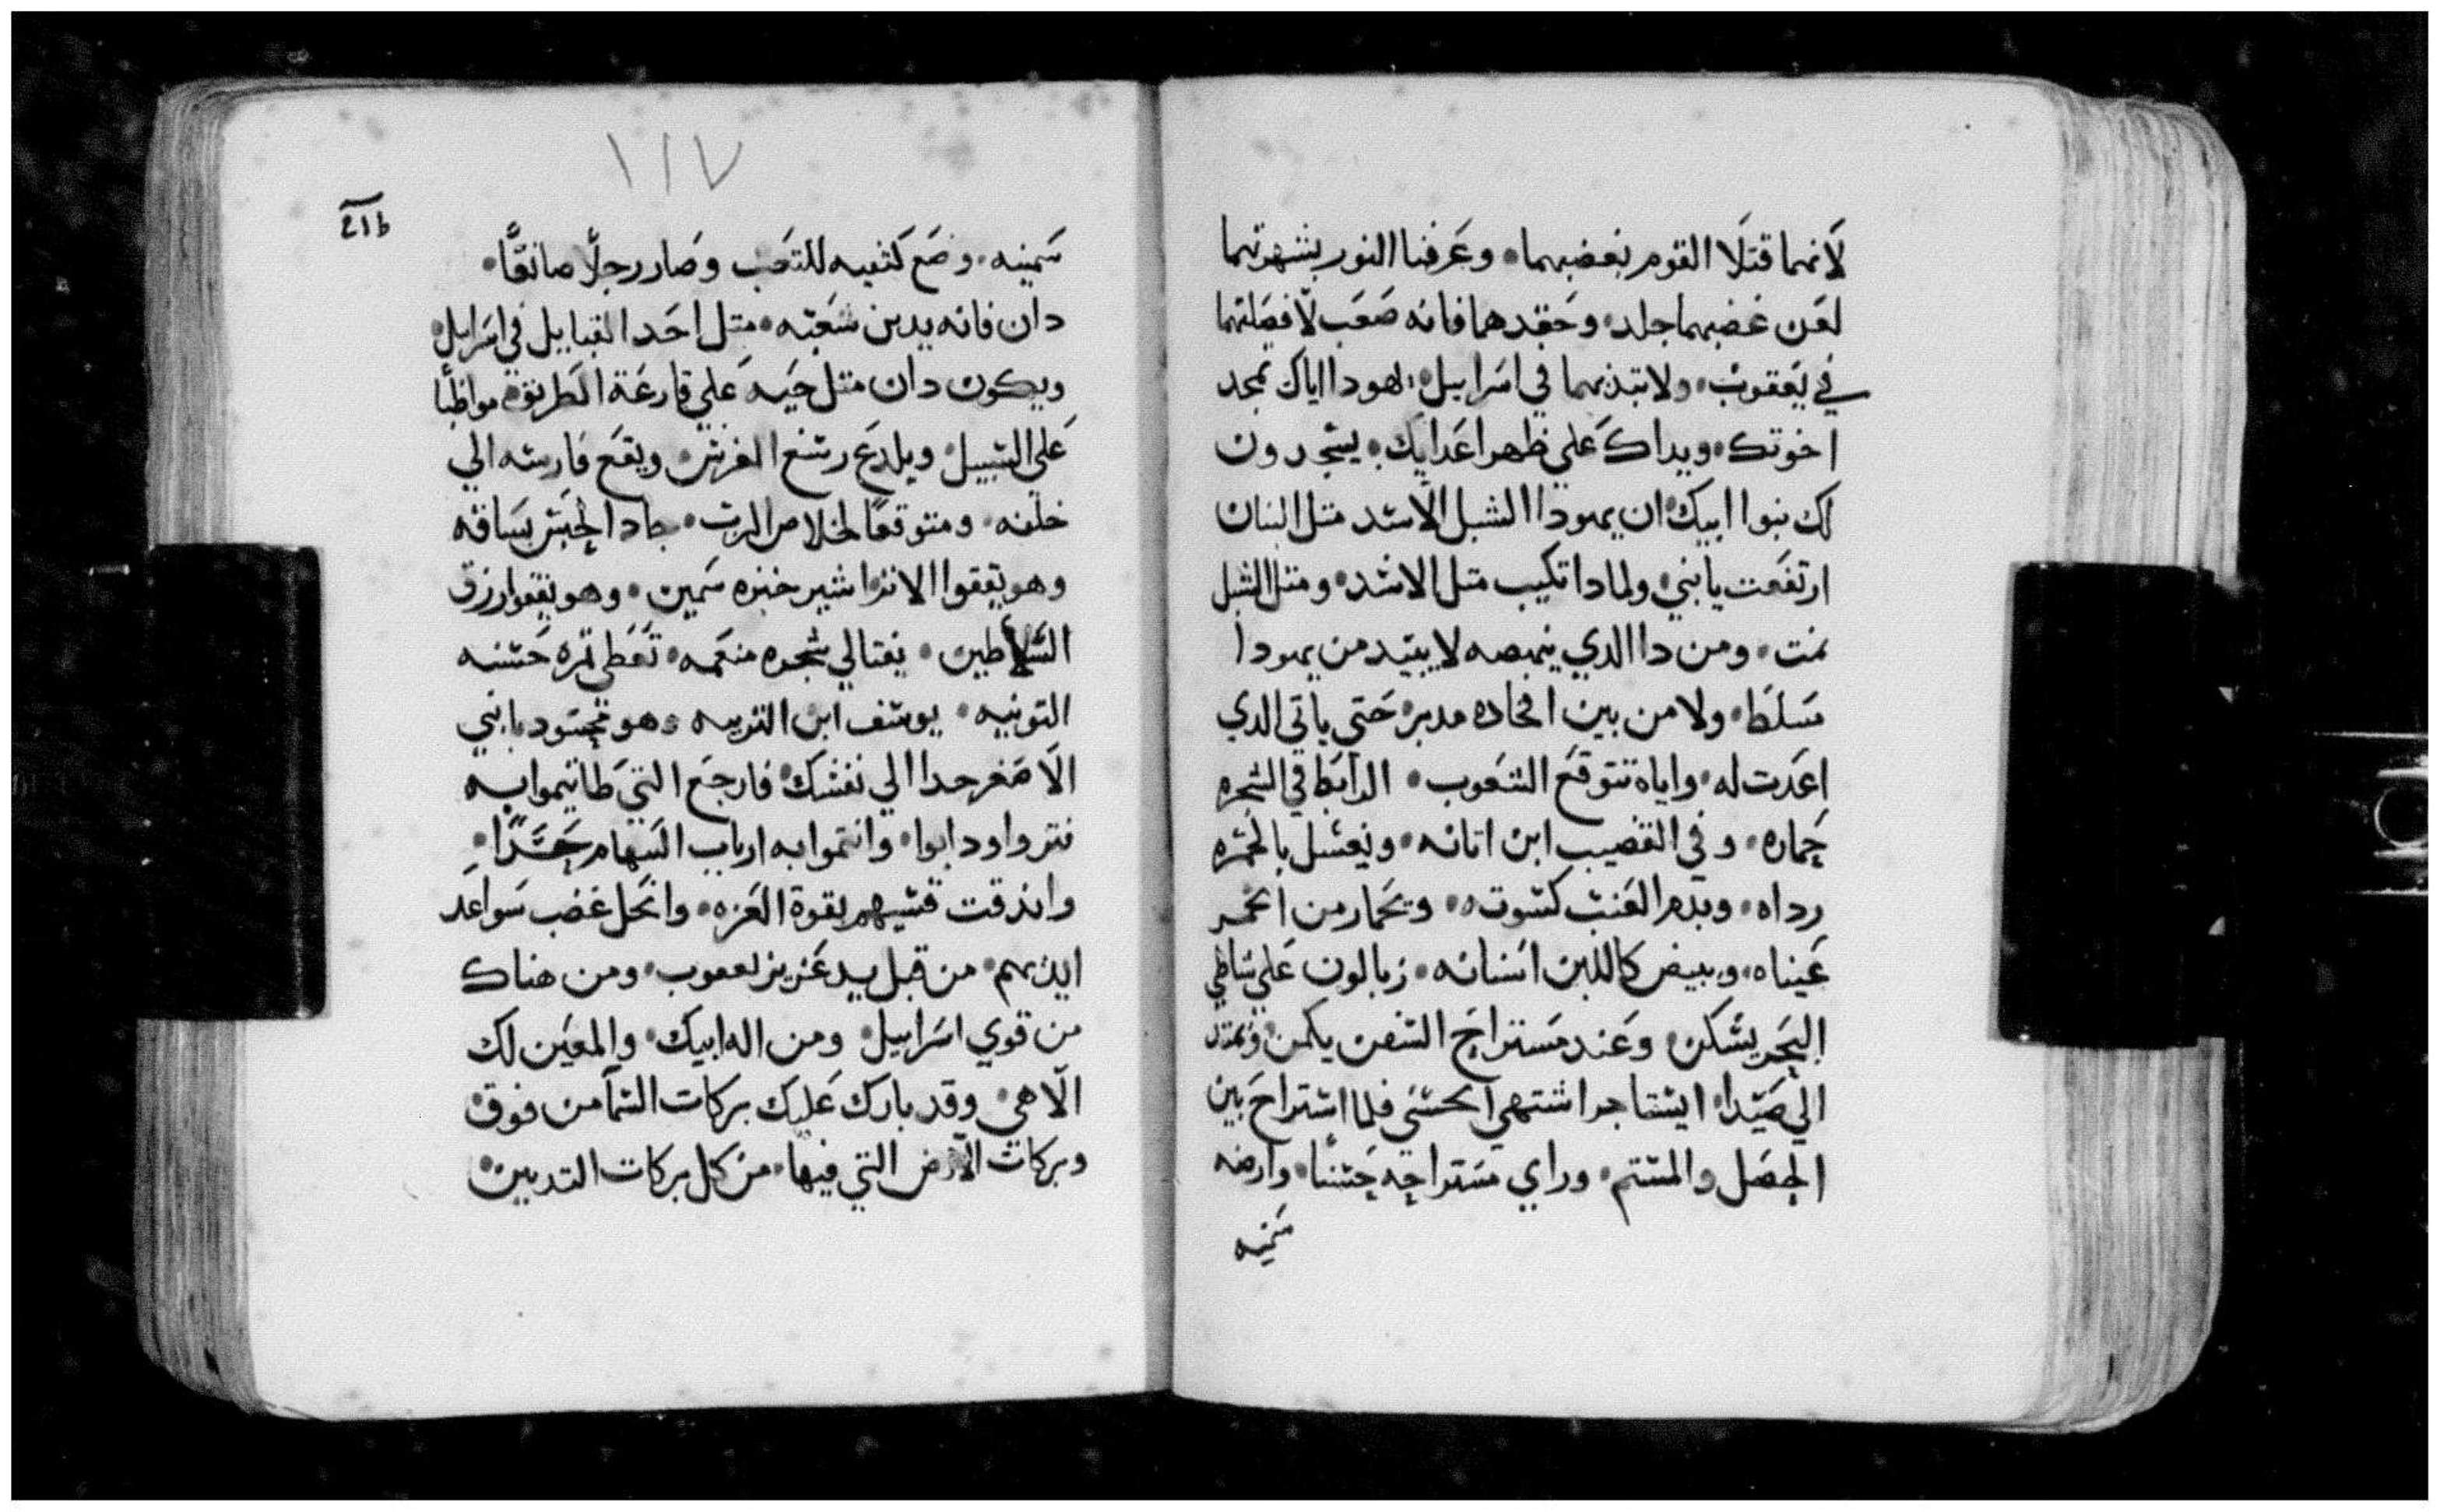 لانهما قتلا القوم بغضبهما. وعرقبا النور بشهوتهما
لعن غضبهما جلد. وحقدهما فانه صعب لافصلتهما
في يعقوب. ولابتدنهما في اسراييل. يهودا اياك تمجد
اخوتك. ويداك علي ظهر اعدايك. يسجدون
لك بنوا ابيك. ان يهودا الشبل الاسد متل البنان
ارتفعت يا بني. ولمادا تكيب متل الاسد. ومتل الشبل
نمت. ومن دا الدي ينهضه لا يبيد من يهودا
مسلط. ولا من بين افخاده مدبر. حتي ياتي الدي
اعدت له. واياه تتوقع الشعوب. الرابط في الشجره
حماره. وفي القضيب ابن اتانه. ويغسل بالخمره
رداه. وبدم العنب كسوته. ويحمار من الخمر
عيناه. وبيض كاللبن اسنانه. زبالون علي شاطي
البحر يسكن. وعند مستراح السفن يكمن. ويمتد
الي صيدا. ايساجر اشتهي الحسني فلما استراح بين
الحصل والمستم. وراي مستراحه حسنا. وارضه
سمينه
١١٧
سمينه. وضع كتفيه للتعب وصار رجلا صانعا.
دان فانه يدين شعبه. متل احد القبايل في اسراييل.
ويكون دان متل حيه علي قارعة الطريق. مواظبا
علي السبيل. ويلدع رسغ الفرس. ويقع فارسه الي
خلفه. ومتوقعا لخلاص الرب. جاد الجيش بساقه
وهو يقفوا الاثر. اشير خبزه سمين. وهو يقفوا رزق
السلاطين. نفتالي شجره منعمه. تعطي تمره حسنه
التونيه. يوسف ابن التربيه وهو محسود يا بني
الاصغر جدا الي نفسك. فارجع التي طانيموا به
فتروا ودابوا. وانتموا به ارباب السهام حسدا.
واندقت قسيهم بقوة العزه. وانحل غضب سواعد
ايديهم. من قبل يد عزيز يعقوب. ومن هناك
من قوي اسراييل. ومن اله ابيك. والمعين لك
الاهي. وقد بارك عليك بركات السما من فوق.
وبركات الارض التي فيها. من كل بركات التديين.